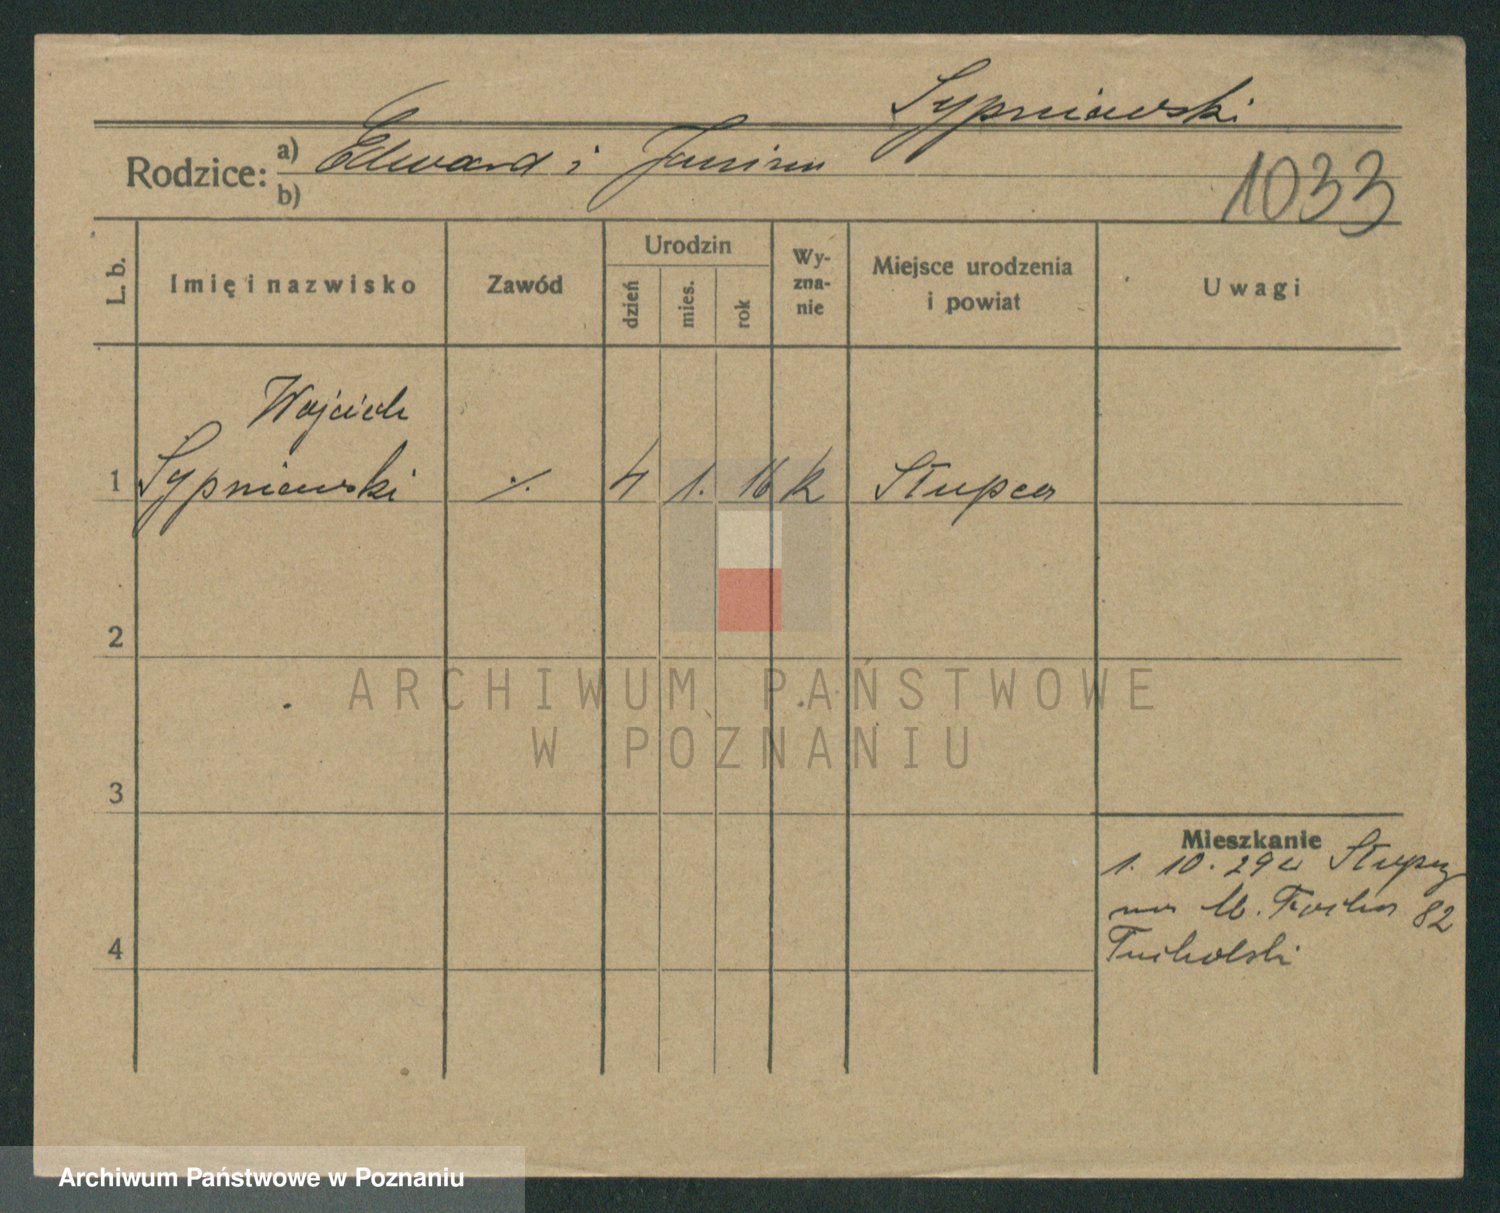 Sypniewski
Rodzice: a) Edward i Janina
b)
1033
L. b.
Imię i nazwisko
Zawód
Urodzin
dzień
mies.
rok
Wy-
zna-
nie
Miejsce urodzenia
i powiat
Uwagi
Wojciech
1 Sypniewski ./. 4 1. 16 k Słupca
2
ARCHIWUM PAŃSTWOWE
W POZNANIU
3
Mieszkanie
1. 10. 29 z Słupcy
na M. Focha 82
4
Tucholski
Archiwum Państwowe w Poznaniu